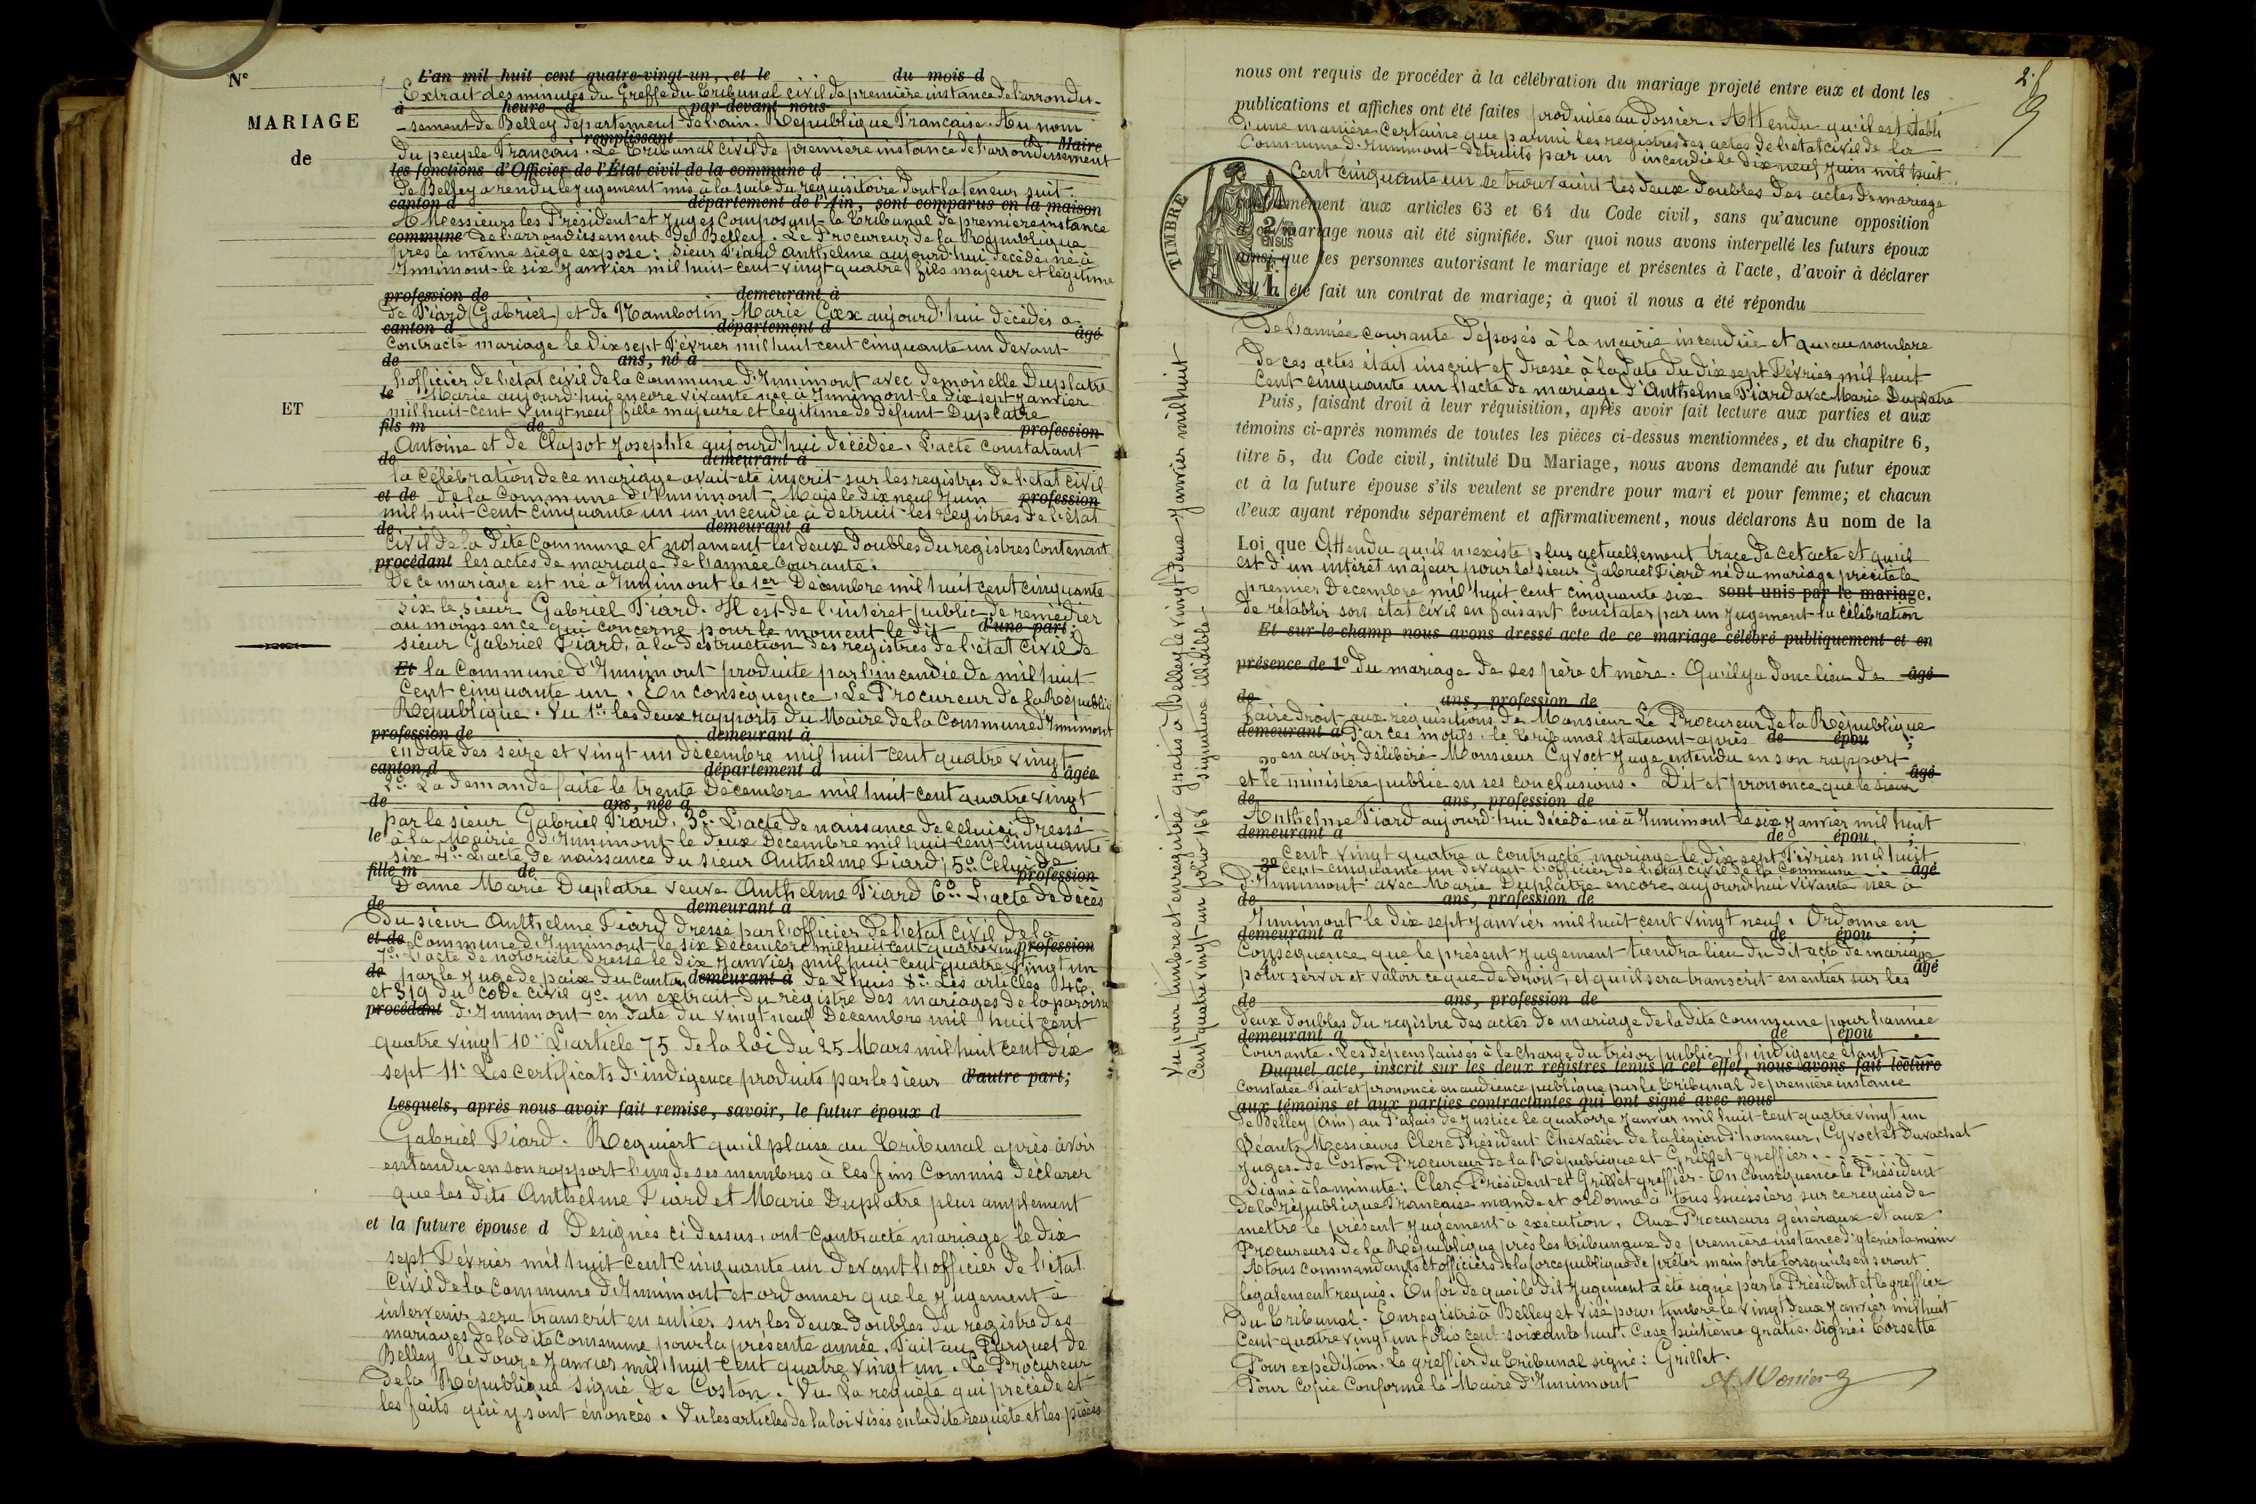 N°
MARIAGE
de
ET
L'an mil huit cent quatre-vingt-un, et le du mois d
Extrait des minutes du Greffe du Tribunal civil de première instance de l'arrondis-
à heure d par-devant nous
-sement de Belley département de l'ain. République Française. Au nom
remplissant Maire
Du peuple Français. Le Tribunal civil de premiere instance de l'arrondissement
les fonctions d'Officier de l'État civil de la commune d
de Belley a rendu le jugement mis à la suite du requisitoire dont la teneur suit.
canton d département de l'Ain, sont comparus en la maison
A Messieurs les Président et Juges composant le Tribunal de premiere instance
commune de l'arrondissement de Belley. Le Procureur de la République
près le même siège expose: Sieur Fiard Anthelme aujourd'hui décédé né à
Innimont le six Janvier mil huit cent vingt quatre fils majeur et légitime
profession de demeurant à
de Fiard (Gabriel) et de Mambolin Marie Cax aujourd'hui décédés a
canton d département d âgé
contracté mariage le dix sept Février mil huit cent cinquante un devant
de ans, né à
l'officier de l'état civil de la commune d'Innimont avec demoiselle Duplatre
le Marie aujourd'hui encore vivante née à Innimont le dix sept Janvier
mil huit cent vingt neuf fille majeure et legitime de défunt Duplatre
fils m de profession
Antoine et de Clapot Josephte aujourd'hui décédée. L'acte constatant
de demeurant à
la célébration de ce mariage avait été inscrit sur les registres de l'état civil
et de de la Commune d'Innimont. Mais le dix neuf Juin profession
mil huit cent cinquante un un incendie a detruit les registres de l'état
de demeurant à
civil de la dite commune et notament les deux doubles du registres contenant
procédant les actes de mariage de l'année courante.
De ce mariage est né à Innimont le 1er Décembre mil huit cent cinquante
six le sieur Gabriel Fiard. Il est de l'intéret public de remédier
au moins en ce qui concerne pour le moment le dit d'une part;
sieur Gabriel Fiard, à la destruction des registres de l'état civil de
Et la commune d'Innimont produite par l'incendie de mil huit
cent cinquante un. En conséquence. Le Procureur de la Républiq
République. Vu 1° les deux rapports du Maire de la commune d'Innimont
profession de demeurant à
en date des seize et vingt un décembre mil huit cent quatre vingt
canton d département d âgée
2° La demande faite le trente Décembre mil huit cent quatre vingt
de ans, née à
par le sieur Gabriel Fiard. 3° L'acte de naissance de celui ci dressé
le à la Mairie d'Innimont le deux Décembre mil huit cent cinquante
six 4° L'acte de naissance du sieur Anthelme Fiard; 5° Celui de
fille m de profession
Dame Marie Duplatre veuve Anthelme Fiard 6° L'acte de décès
de demeurant à
du sieur Anthelme Fiard dressé par l'officier de l'état civil de la
et de commune d'Innimont le six Décembre mil huit cent quatre vingt profession
7° L'acte de notoriété dressé le dix Janvier mil huit cent quatre vingt un
de par le Juge de paix du canton demeurant à de Lhuis 8° Les articles 46
et 319 du code civil 9° un extrait du registre des mariages de la paroisse
procédant d'Innimont en date du vingt neuf Décembre mil huit cent
quatre vingt 10° L'article 75 de la loi du 25 Mars mil huit cent dix
sept 11° Les certificats d'indigence produits par le sieur d'autre part;
Lesquels, après nous avoir fait remise, savoir, le futur époux d
Gabriel Fiard. Requiert qu'il plaise au Tribunal après avoir
entendu en son rapport l'un de ses membres à ces fins commis déclarer
que les dits Anthelme Fiard et Marie Duplatre plus amplement
et la future épouse d Designés ci dessus, ont contracté mariage le dix
sept Février mil huit cent cinquante un devant l'officier de l'état
civil de la commune d'Innimont et ordonner que le jugement à
intervenir sera transcrit en entier sur les deux doubles du registre des
mariages de la dite commune pour la présente année. Fait au Parquet de
Belley le douze Janvier mil huit cent quatre vingt un. Le Procureur
de la République signé De Coston. Vu la requête qui précède et
les faits qui y sont énoncés. Vu les articles de la loi visés en la dite requête et les pièces
nous ont requis de procéder à la célébration du mariage projeté entre eux et dont les
publications et affiches ont été faites produites au Dossier. Attendu qu'il est établi
d'une manière certaine que parmi les registres des actes de l'état civil de la
Commune d'Innimont détruits par un incendie le dix neuf Juin mil huit
Cent cinquante un se trouvaient les deux doubles des actes de mariage
TIMBRE
conformément aux articles 63 et 64 du Code civil, sans qu'aucune opposition
à ce mariage nous ait été signifiée. Sur quoi nous avons interpellé les futurs époux
ainsi que les personnes autorisant le mariage et présentes à l'acte, d'avoir à déclarer
s'il a été fait un contrat de mariage; à quoi il nous a été répondu
De l'année courante déposés à la mairie incendiée et qu'au nombre
de ces actes était inscrit et dressé à la date du dix sept Février mil huit
cent cinquante un l'acte de mariage d'Anthelme Fiard avec Marie Duplatre
Puis, faisant droit à leur réquisition, après avoir fait lecture aux parties et aux
témoins ci-après nommés de toutes les pièces ci-dessus mentionnées, et du chapitre 6,
titre 5, du Code civil, intitulé Du Mariage, nous avons demandé au futur époux
et à la future épouse s'ils veulent se prendre pour mari et pour femme; et chacun
d'eux ayant répondu séparément et affirmativement, nous déclarons Au nom de la
Loi que Attendu qu'il n'existe plus actuellement trace de cet acte et qu'il
est d'un intérêt majeur pour le sieur Gabriel Fiard né du mariage précité le
premier Décembre mil huit cent cinquante six sont unis par le mariage.
de rétablir son état civil en faisant constater par un jugement la célébration
Et sur-le-champ nous avons dressé acte de ce mariage célébré publiquement et en
présence de 1° du mariage de ses père et mère. Qu'il y a donc lieu de âgé
de ans, profession de
faire droit aux réquisitions de Monsieur Le Procureur de la République
demeurant à Par ces motifs, le Tribunal statuant après de épou ;
2° en avoir délibéré Monsieur Cyvoct Juge entendu en son rapport
et le ministère public en ses conclusions. Dit et prononce que le sieur âgé
de ans, profession de
Anthelme Fiard aujourd'hui décédé né à Innimont le six Janvier mil huit
demeurant à de épou ;
cent vingt quatre a contracté mariage le dix sept Février mil huit
3° cent cinquante un devant l'officier de l'état civil de la Commune âgé
d'Innimont avec Marie Duplâtre encore aujourd'hui vivante née à
de ans, profession de
Innimont le dix sept Janvier mil huit cent vingt neuf. Ordonne en
demeurant à de épou ;
Conséquence que le présent jugement tiendra lieu du dit acte de mariage
pour servir et valoir ce que de droit, et qu'il sera transcrit en entier sur les âgé
de ans, profession de
deux doubles du registre des actes de mariage de la dite commune pour l'année
demeurant à de épou .
Courante. Les dépens laissés à la charge du trésor public, l'indigence étant
Duquel acte, inscrit sur les deux registres tenus à cet effet, nous avons fait lecture
Constatée. Fait et prononcé en audience publique par le Tribunal de première instance
aux témoins et aux parties contractantes qui ont signé avec nous
de Belley (Ain) au Palais de Justice le quatorze Janvier mil huit cent quatre vingt un
Séants Messieurs Clerc Président Chevalier de la légion d'honneur, Cyvoct et Duvachat
Juges. de Coston Procureur de la République et Grillet greffier.
Signé à la minute: Clerc Président et Grillet greffier. En conséquence le Président
de la république Française mande et ordonne à tous huissiers sur ce requis de
mettre le présent jugement à exécution, Aux Procureurs généraux et aux
Procureurs de la République près les tribunaux de première instance d'y tenir la main
A tous commandants et officiers de la force publique de prêter main forte lorsqu'ils en seront
légalement requis. En foi de quoi le dit jugement a été signé par le Président et le greffier
du Tribunal. Enregistré à Belley et visé pour timbre le vingt deux Janvier mil huit
cent quatre vingt un folio cent soixante huit. Case huitième gratis. Signé: Corsette
Pour expédition. Le greffier du Tribunal signé: Grillet.
Pour copie conforme le Maire d'Innimont
Vu pour timbre et enregistré gratis à Belley le vingt deux Janvier mil huit
Cent quatre vingt un folio 168 signature illisible.